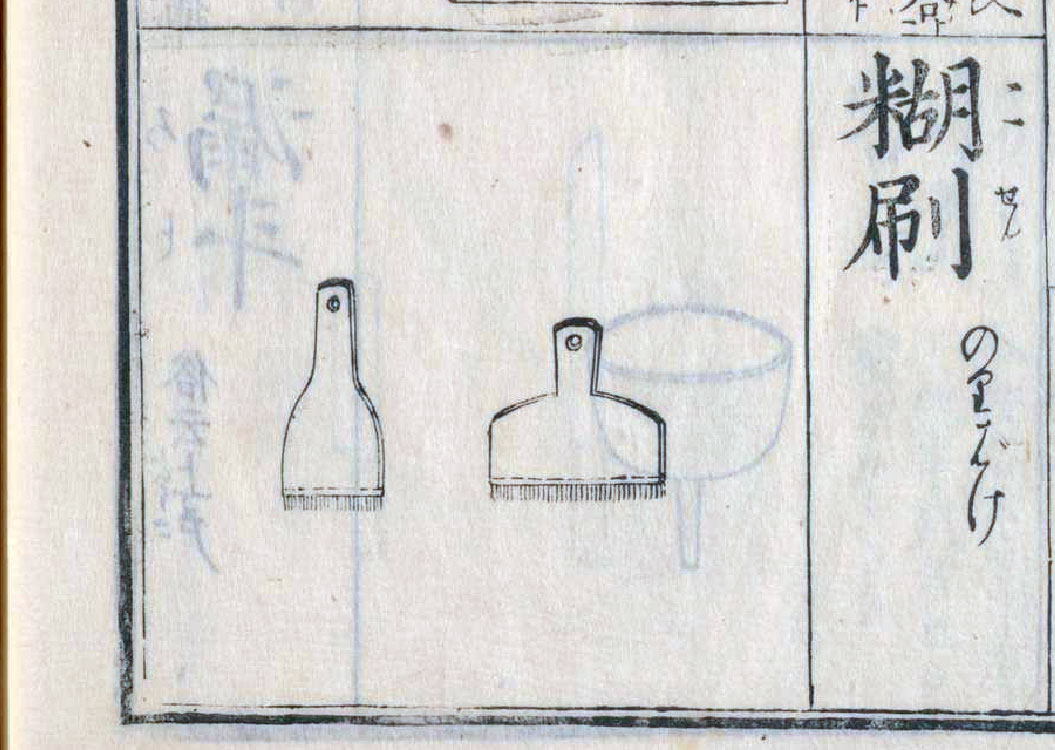 糊刷
こ せん
のりばけ